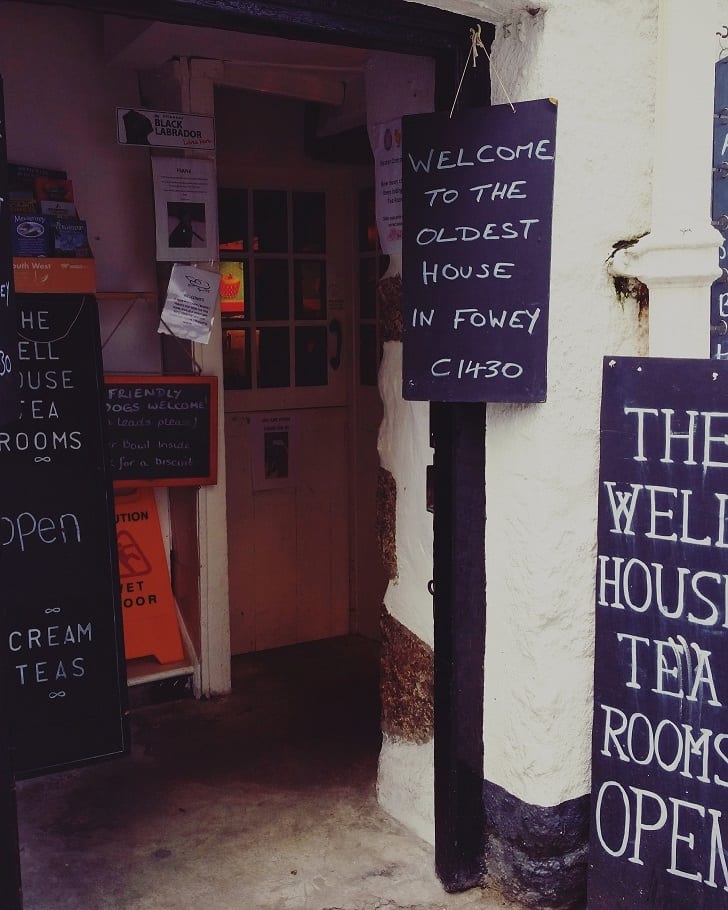 BLACK
LABRADOR
outh West
HE
ELL
OUSE
EA
ROOMS
open
CREAM
TEAS
FRIENDLY
DOGS WELCOME!
leads please!
Bowl Inside
for a biscuit
UTION
WET
OOR
WELCOME
TO THE
OLDEST
HOUSE
IN FOWEY
C1430
THE
WELL
HOUSE
TEA
ROOMS
OPEN